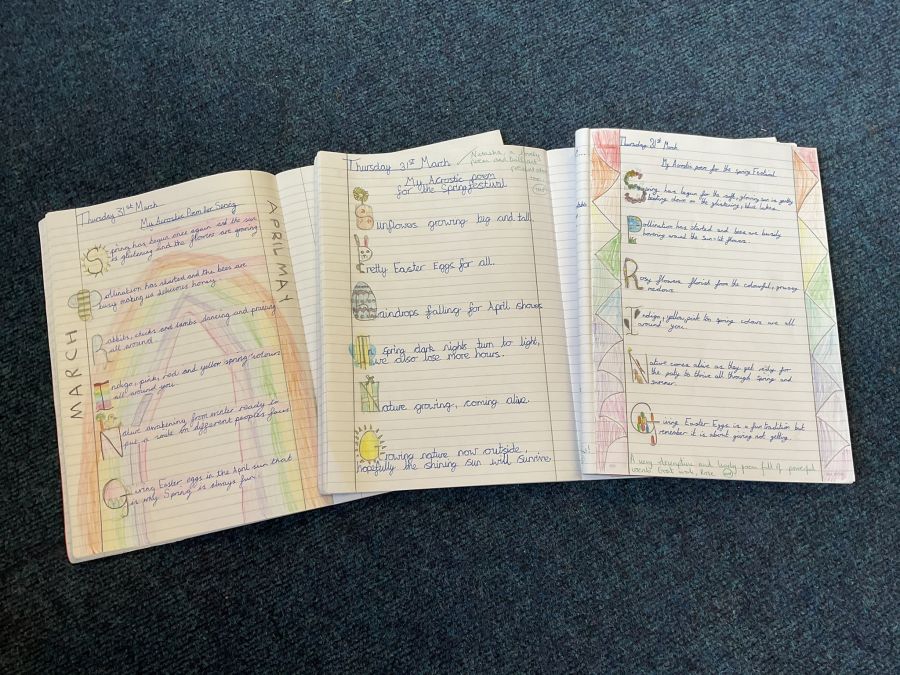 MARCH
APRIL MAY
Thursday 31st March
My Acrostic Poem for Spring
Spring has begun once again and the sun
is glistening and the flowers are growing
Pollination has started and the bees are
busy making us delicious honey.
Rabbits, chicks and lambs dancing and
all around.
Indigo, pink, red and yellow spring colours
all around you.
Nature awakening from winter ready to
put a smile on different peoples faces!
Giving Easter eggs in the April sun that
is why Spring is always fun.
Thursday 31st March
My Acrostic poem
for the Spring festival
Natasha, a lovely
poem and brilliant
Sunflowers growing big and tall.
Pretty Easter Eggs for all.
Raindrops falling for April showers
In spring dark nights turn to light,
we also lose more hours.
Nature growing, coming alive.
Growing nature now outside,
hopefully the shining sun will survive
Thursday 31st March
My Acrostic poem for the spring Festival
Spring has begun for the soft, glowing sun is gently
beating down on the glistening, blue lakes.
Pollination has started and bees are busily
hovering around the sun-lit flowers.
Rosy flowers florish from the colourful, growing
medows.
Indigo, yellow, pink ton spring colours are all
around you.
Nature comes alive as they get ready for
the party to thrive all through Spring and
summer.
Giving Easter Eggs is a fun tradition but
remember it is about giving not getting.
A very descriptive and lovely poem full of powerful
words! Great work, Rose